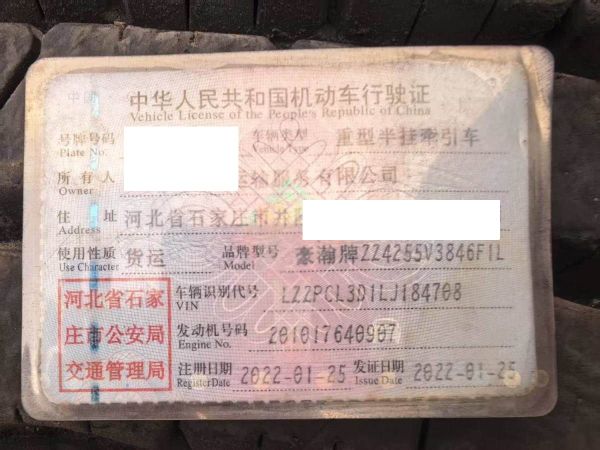 中华人民共和国机动车行驶证
Vehicle License of the People's Republic of China
号牌号码 Plate No. 车辆类型 Vehicle Type 重型半挂牵引车
所有人 Owner 运输服务有限公司
住址 Address 河北省石家庄市井
使用性质 Use Character 货运 品牌型号 Model 豪瀚牌ZZ4255V3846F1L
河北省石家
庄市公安局
交通管理局
车辆识别代号 VIN LZZPCL3D1LJ184708
发动机号码 Engine No. 201017640907
注册日期 Register Date 2022-01-25 发证日期 Issue Date 2022-01-25